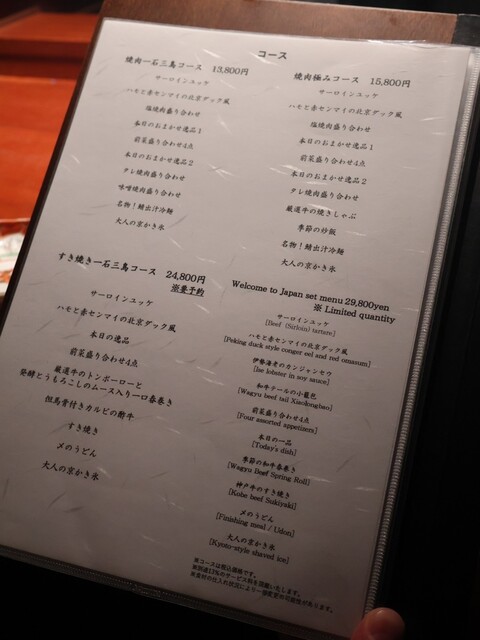 コース
焼肉一石三鳥コース 13,800円
サーロインユッケ
ハモと赤センマイの北京ダック風
塩焼肉盛り合わせ
本日のおまかせ逸品1
前菜盛り合わせ4点
本日のおまかせ逸品2
タレ焼肉盛り合わせ
味噌焼肉盛り合わせ
名物！鯖出汁冷麺
大人の京かき氷
焼肉極みコース 15,800円
サーロインユッケ
ハモと赤センマイの北京ダック風
塩焼肉盛り合わせ
本日のおまかせ逸品1
前菜盛り合わせ4点
本日のおまかせ逸品2
タレ焼肉盛り合わせ
厳選牛の焼きしゃぶ
季節の炒飯
名物！鯖出汁冷麺
大人の京かき氷
すき焼き一石三鳥コース 24,800円
※要予約
サーロインユッケ
ハモと赤センマイの北京ダック風
本日の逸品
前菜盛り合わせ4点
厳選牛のトンポーローと
発酵とうもろこしのムース入り一口春巻き
但馬骨付きカルビの酢牛
すき焼き
〆のうどん
大人の京かき氷
Welcome to Japan set menu 29,800yen
※ Limited quantity
サーロインユッケ
[Beef (Sirloin) tartare]
ハモと赤センマイの北京ダック風
[Peking duck style conger eel and red omasum]
伊勢海老のカンジャンセウ
[Ise lobster in soy sauce]
和牛テールの小籠包
[Wagyu beef tail Xiaolongbao]
前菜盛り合わせ4点
[Four assorted appetizers]
本日の一品
[Today's dish]
季節の和牛春巻き
[Wagyu Beef Spring Roll]
神戸牛のすき焼き
[Kobe beef Sukiyaki]
〆のうどん
[Finishing meal / Udon]
大人の京かき氷
[Kyoto-style shaved ice]
※コースは税込価格です。
※別途13%のサービス料を頂戴いたします。
※食材の仕入れ状況により一部変更の可能性があります。